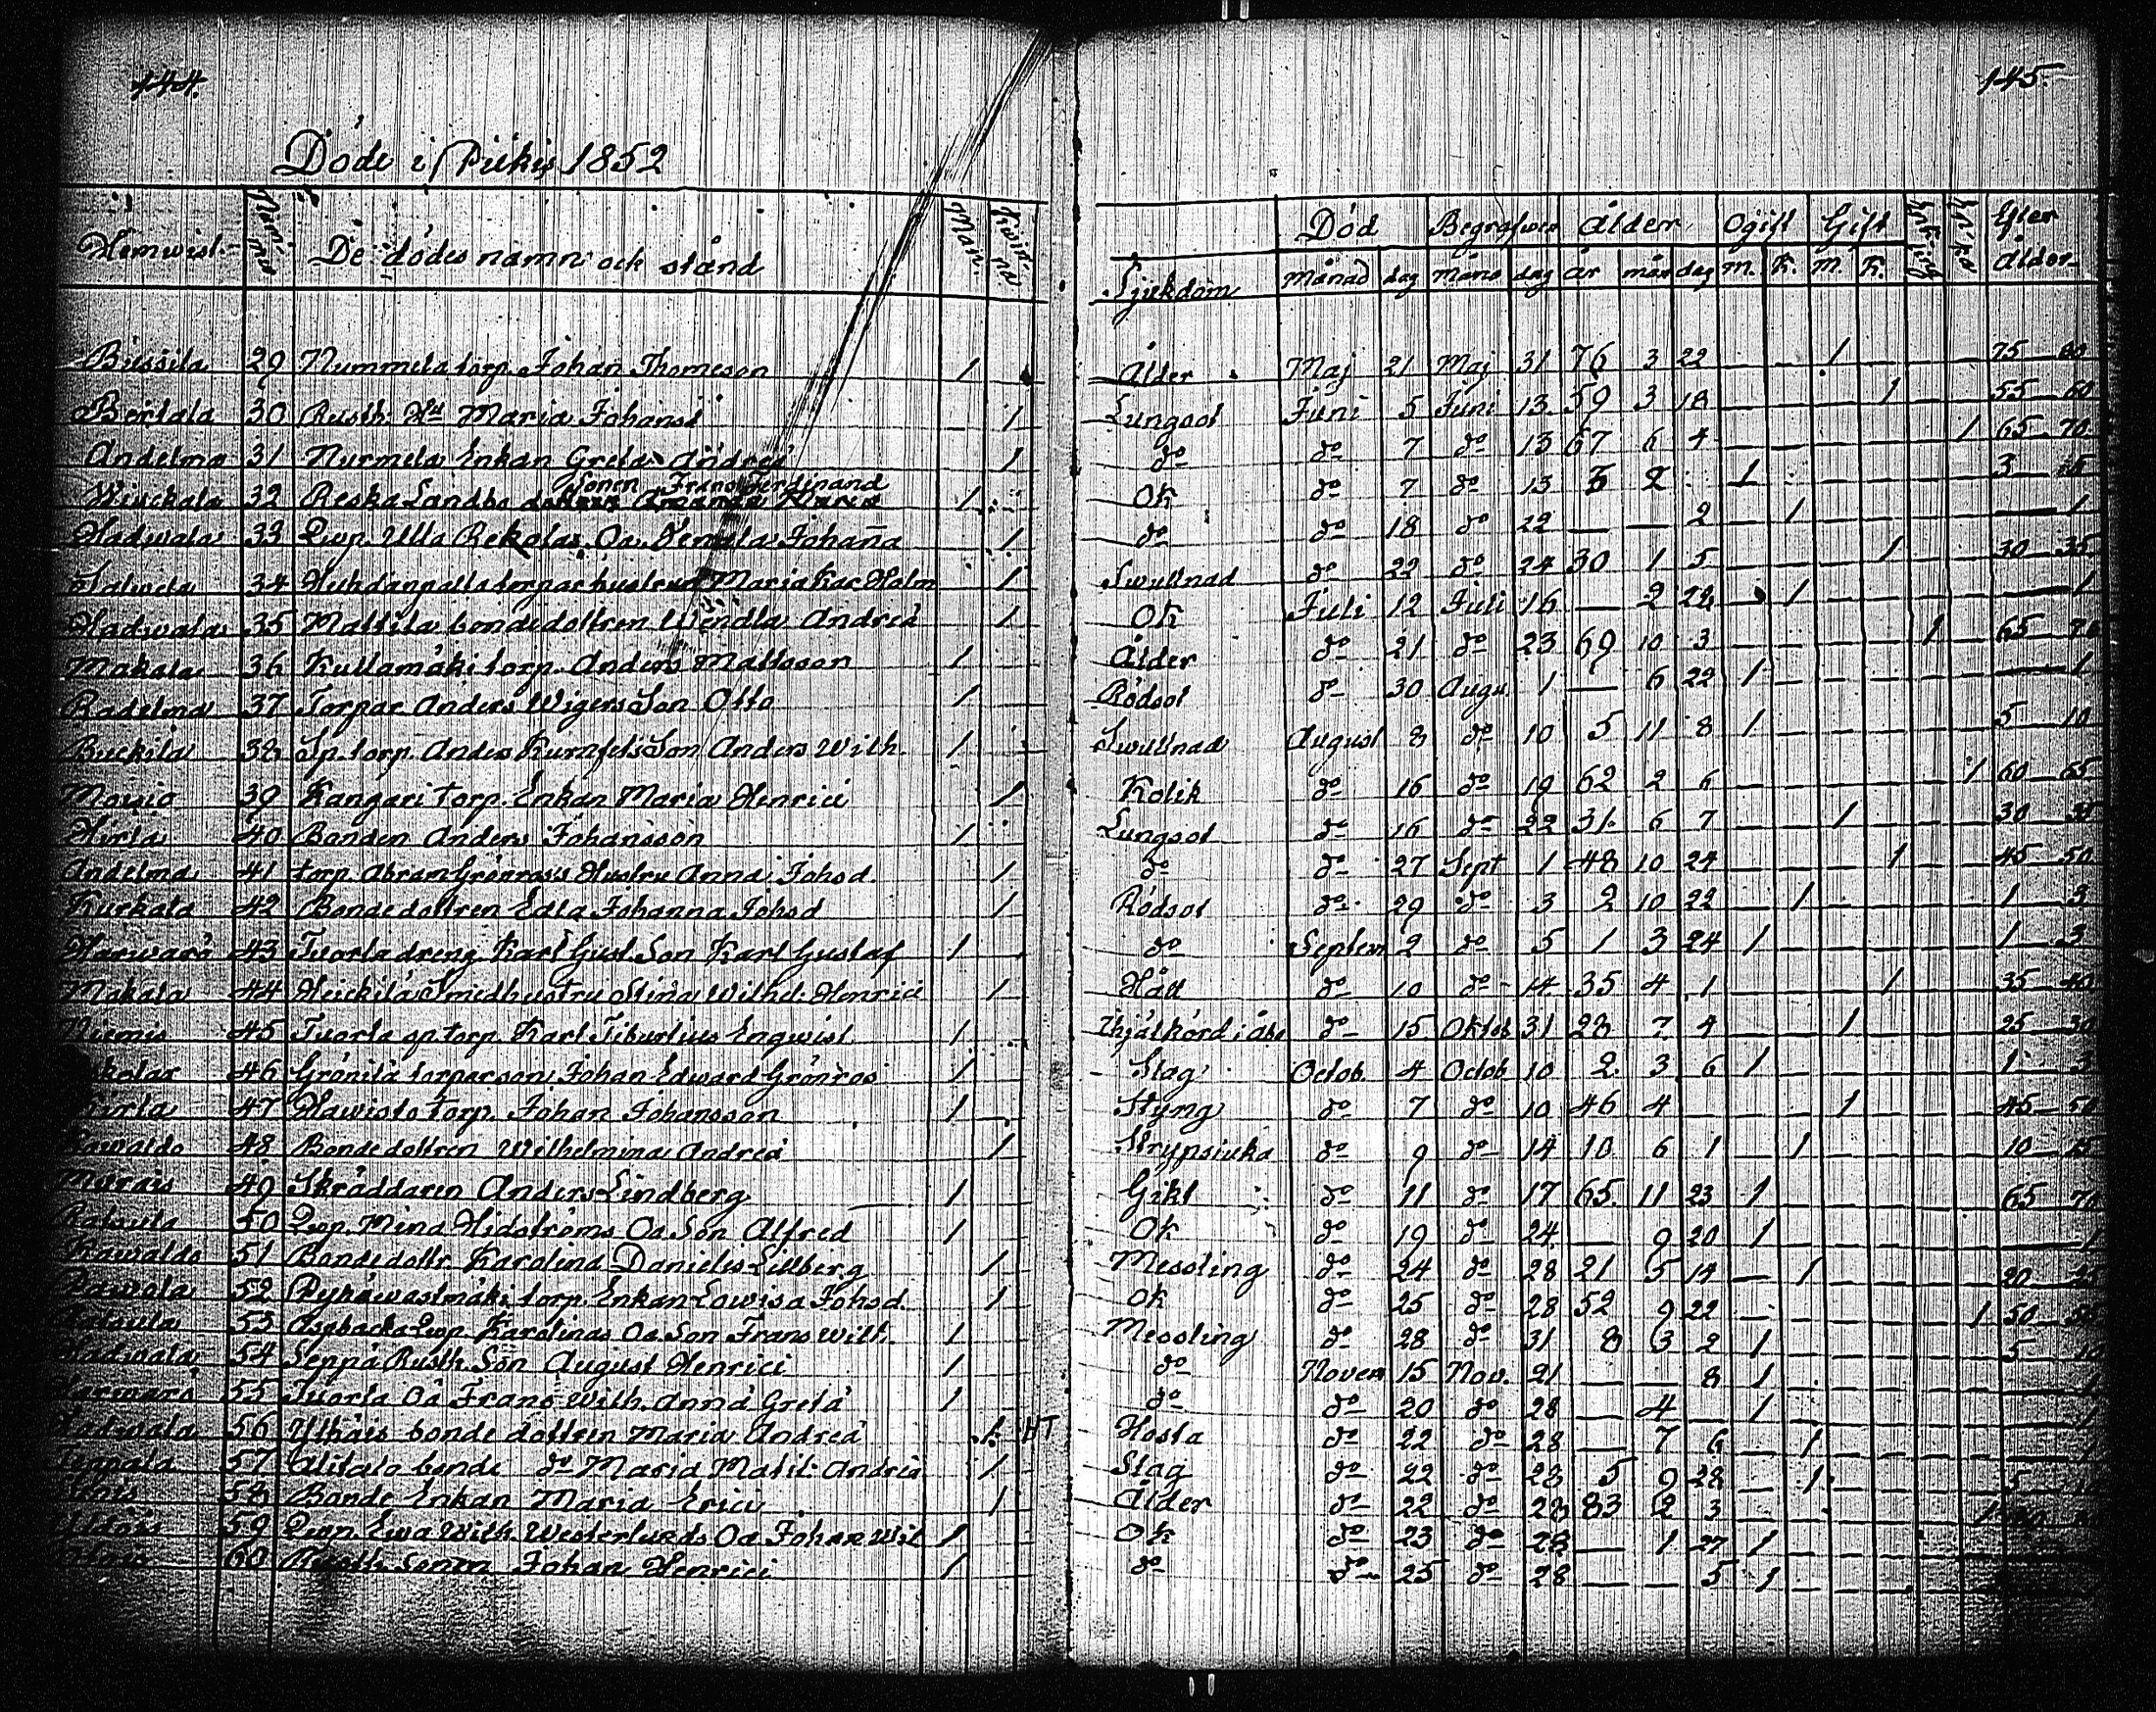 144.
145.
Döde i Pikis 1852
Hemwist. Nummer De dödes namn och stånd Man. Qwinna Sjukdom Död Begrafwen Ålder Ogift Gift Enkling Enka Efter ålder
månad dag måna dag år mån dag m. K. M. K.
29 Nummela torp. Johan Thomsson 1 Ålder Maj 21 Maj 31 76 3 22 — — 1 — — — 75
Bertala 30 Rusth. Hu Maria Johansd 1 Lungsot Juni 5 Juni 13 59 3 18 — — — 1 55 60
Andelma 31 Nurmela Enkan Greta Andreä 1 do do 7 do 13 67 6 4 — — — — 1 65 70
Sonen Frans Ferdinand
32 Reska Landbo 1 OK do 7 do 13 1 3
Hadwala 33 Pig. Ulla Rekolas Oa. Johana 1 do do 18 do 22 — — 2 — 1 1
34 torpar hustrun Maria Holm 1 Swullnad do 22 do 24 30 1 5 1 30 35
Hadwala 35 Mattila bondedottren Wendla Andreä 1 OK Juli 12 Juli 16 — 2 22 — 1 1
Makala 36 Kullamäki torp. Anders Mattsson 1 Ålder do 21 do 23 69 10 3 1 65 70
Radelma 37 Torpar Anders Wigers Son Otto 1 Rödsot do 30 Augu. 1 — 6 22 1 1
38 Sp. torp. Anders Son Anders Wilh. 1 Swullnad August 8 do 10 5 11 8 1 5 10
Moisio 39 Kangari torp. Enkan Maria Henrici 1 Kolik do 16 do 19 62 2 6 1 60 65
Hirla 40 Bonden Anders Johansson 1 Lungsot do 16 do 22 31 6 7 — — 1 30 35
Andelma 41 torp. Abram Grönros's Hustru Anna Johsd. 1 do do 27 Sept 1 48 10 24 1 45 50
Kuckala 42 Bondedottren Edla Johanna Johsd 1 Rödsot do 29 do 3 2 10 22 — 1 1 3
Harwarö 43 Tuorla dreng Karl Gust. Son Karl Gustaf 1 do Septem 2 do 5 1 3 24 1 1 3
Makala 44 Heickilä Smedhustru Stina Wilhel. Henrici 1 Håll do 10 do 14 35 4 1 1 35 40
Niemis 45 Tuorla sp torp. Karl Tiburtius Enqwist 1 Ihjälkörd i Åbo do 15 Oktob 31 28 7 4 1 25 30
46 Grönilä torparson Johan Edward Grönros 1 Slag Octob. 4 Octob 10 2 3 6 1 1 3
47 Hawisto torp. Johan Johansson 1 Styng do 7 do 10 46 4 1 45 50
48 Bondedottren Wilhelmina Andreä 1 Strypsiuka do 9 do 14 10 6 1 — 1 10 15
49 Skräddaren Anders Lindberg 1 Gikt do 11 do 17 65 11 23 1 65 70
50 Mina Hidströms Oa. Son Alfred 1 OK do 19 do 24 — 9 20 1 1
Kawaldo 51 Bondedottr. Karolina Danielis Lillberg 1 Messling do 24 do 28 21 5 14 — 1 20 25
52 torp. Enkan Lowisa Johsd. 1 OK do 25 do 28 52 9 22 1 50 55
53 Karolinas Oa. Son Frans Wilh. 1 Messling do 28 do 31 8 3 2 1 5 10
Hadwala 54 Seppä Rusth. Son August Henrici 1 do Novem 15 Nov. 21 — — 8 1 1
Harwarö 55 Tuorla Oä Frans Wilh. Anna Greta 1 do do 20 do 28 — 4 — 1 1
Hadwala 56 bonde dottren Maria Andreä 1 HT Hosta do 22 do 28 — 7 6 — 1 1
57 Alitalo bonde do Maria Matil. Andreä 1 Slag do 22 do 28 5 9 28 1 5
58 Bonde Enkan Maria Erici 1 Ålder do 22 do 28 83 2 3 1
59 Ewa Wilh. Westerlunds Oa. Johan Wil 1 OK do 23 do 28 — 1 27 1
60 Rusth. Sonen Johan Henrici 1 do do 25 do 28 — — 5 1